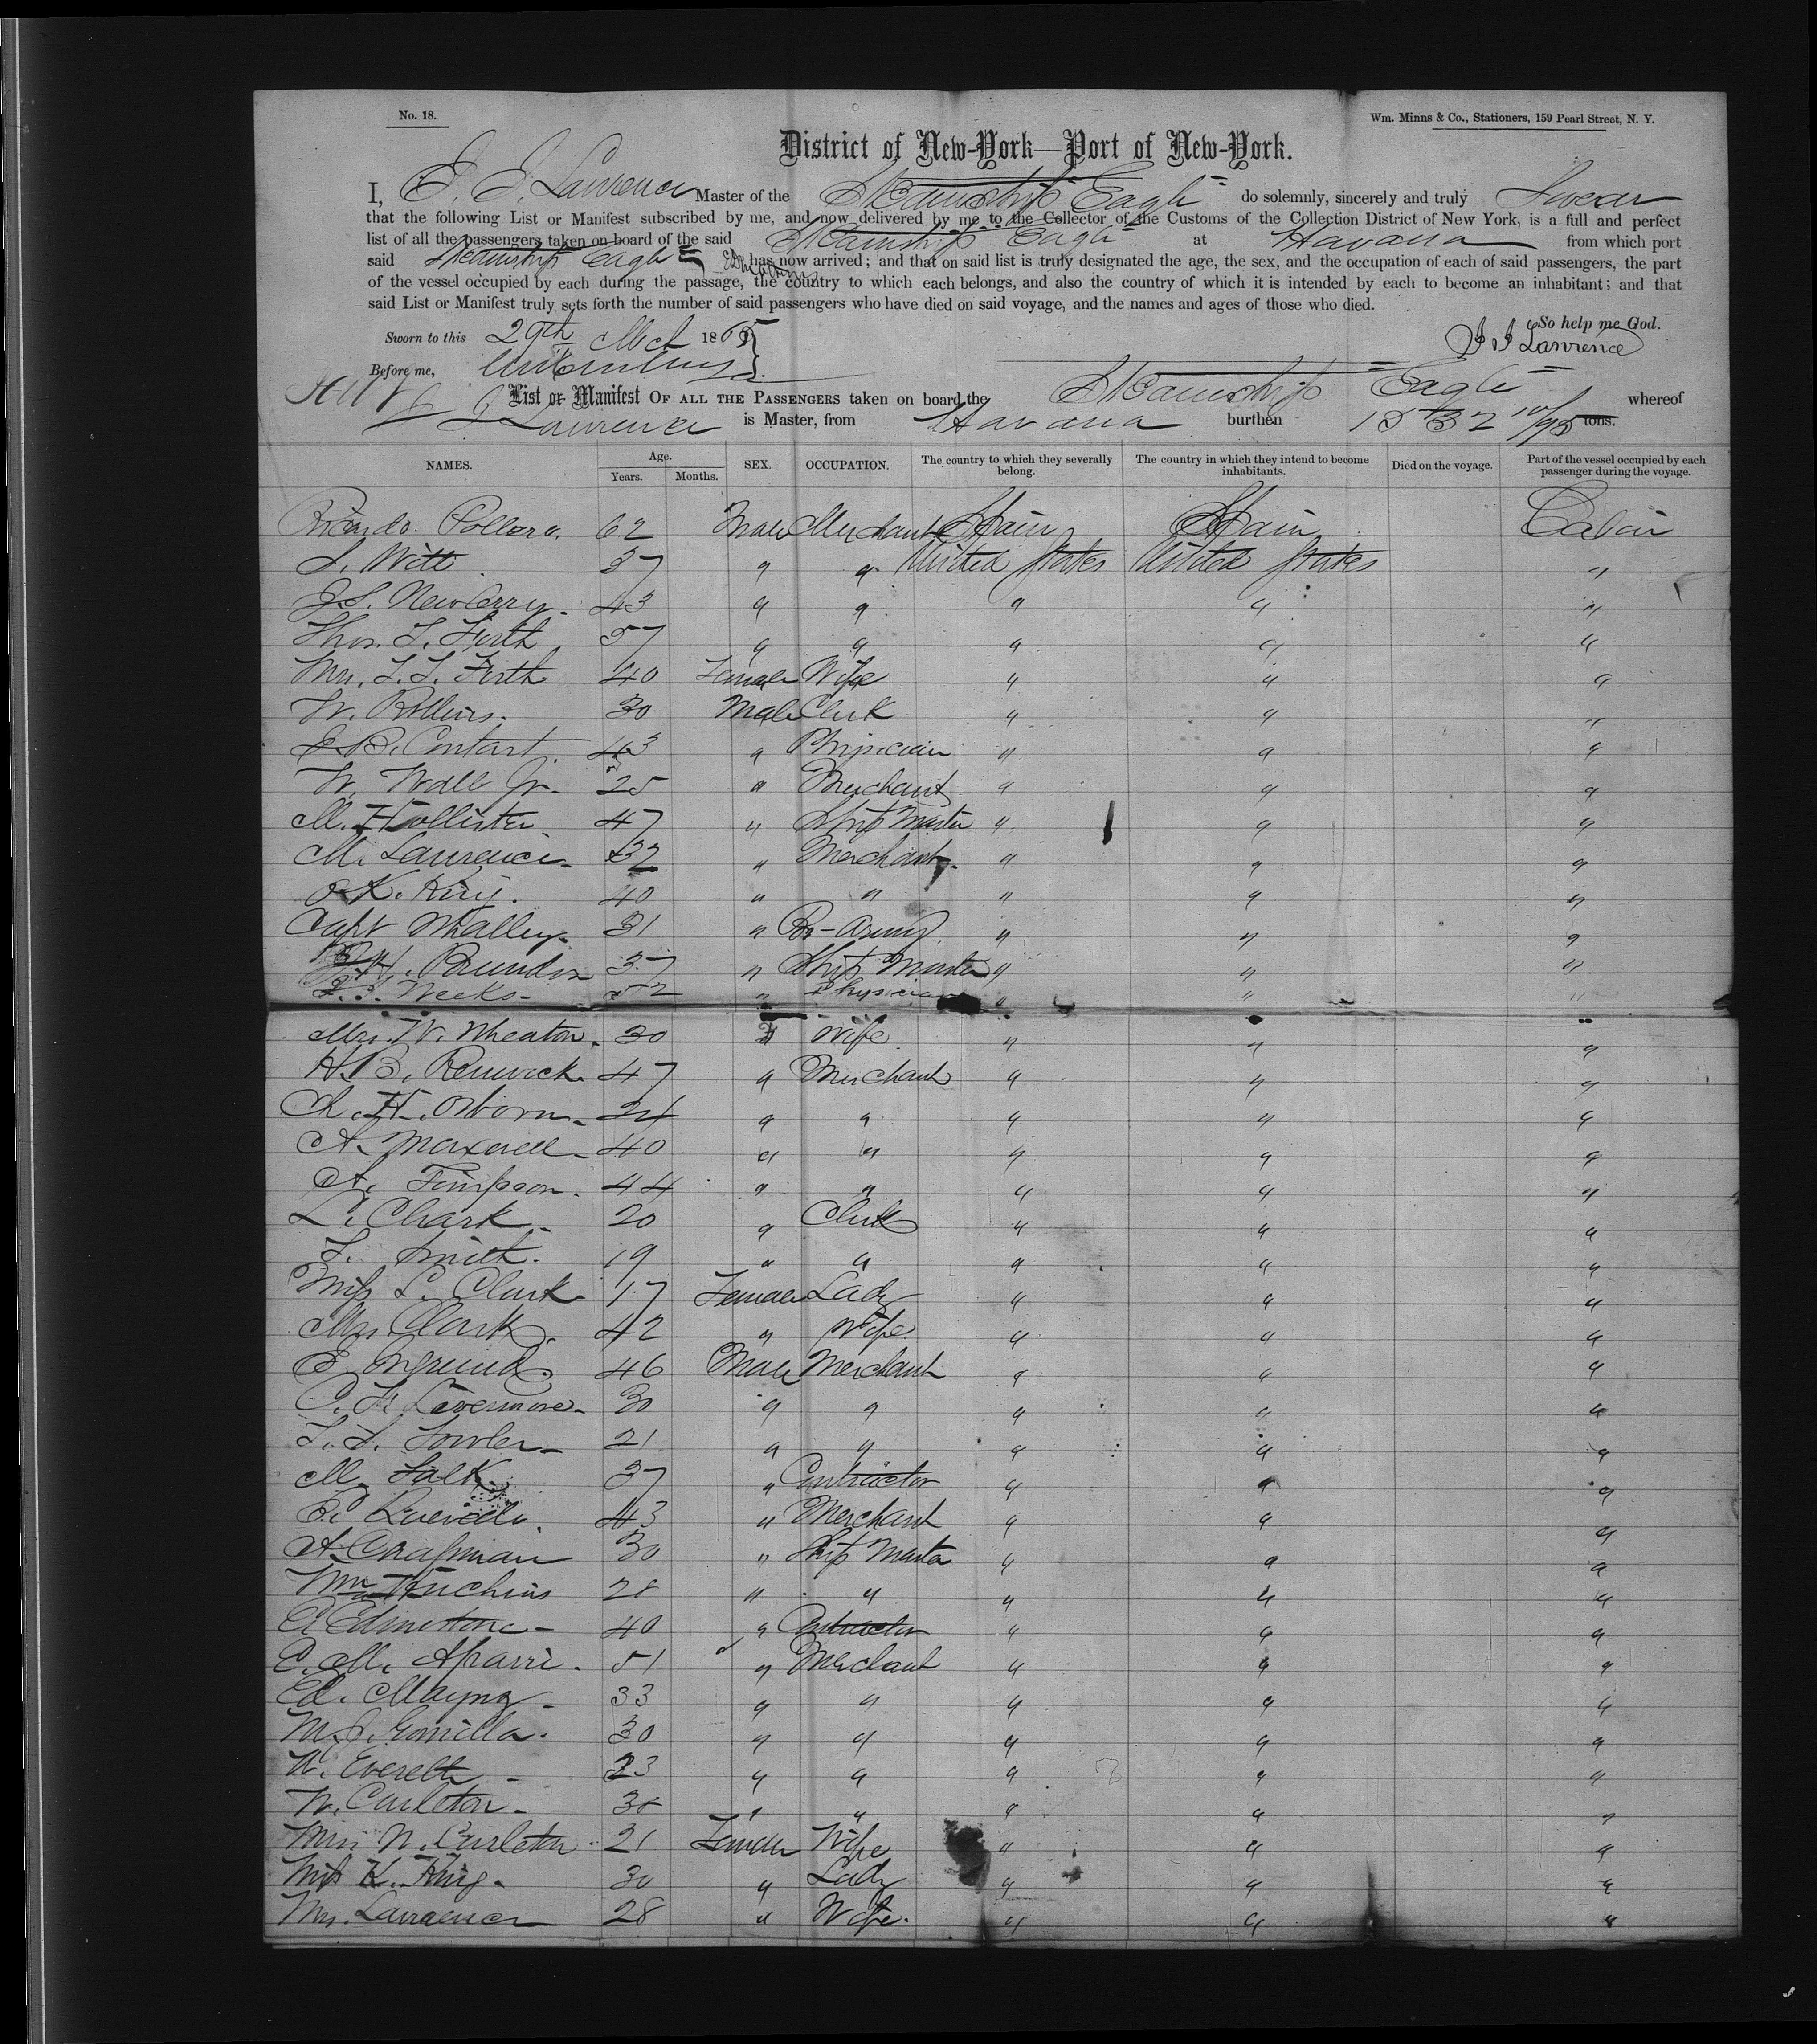 No. 18.
Wm. Minns & Co., Stationers, 159 Pearl Street, N. Y.
District of New-York—Port of New-York.
I, Lawrence Master of the Steamship Eagle do solemnly, sincerely and truly Swear
that the following List or Manifest subscribed by me, and now delivered by me to the Collector of the Customs of the Collection District of New York, is a full and perfect
list of all the passengers taken on board of the said Steamship Eagle at Havana from which port
said Steamship Eagle has now arrived; and that on said list is truly designated the age, the sex, and the occupation of each of said passengers, the part
of the vessel occupied by each during the passage, the country to which each belongs, and also the country of which it is intended by each to become an inhabitant; and that
said List or Manifest truly sets forth the number of said passengers who have died on said voyage, and the names and ages of those who died.
So help me God.
Sworn to this 29th Mch 1865
Lawrence
Before me,
List or Manifest OF ALL THE PASSENGERS taken on board the Steamship Eagle whereof
Lawrence is Master, from Havana burthen tons.
NAMES. Age. Years. Months. SEX. OCCUPATION. The country to which they severally belong. The country in which they intend to become inhabitants. Died on the voyage. Part of the vessel occupied by each passenger during the voyage.
Ricardo 62 Male Merchant Spain Spain Cabin
S. Witt 37 " " United States United States "
J.S. Newberry 43 " " " " "
Thos. T. Firth 57 " " " " "
Mrs. T. T. Firth 40 Female Wife " " "
W. Rollins 30 Male Clerk " " "
43 " Physician " " "
W. Wall Jr. 25 " Merchant " " "
M. Hollister 47 " Ship Master " " "
M. Lawrence 32 " Merchant " " "
K. King. 40 " " " " "
Capt Whalley 31 " Br-Army " " "
37 " Ship Master " " "
Weeks 52 " Physician " " "
Mrs. W. Wheaton 30 Wife " " "
H. B. Renwick 47 " Merchant " " "
H. Osborn 24 " " " " "
A. Maxwell 40 " " " " "
A. Timpson 44 " " " " "
L. Clark 20 " Clerk " " "
T. Smith 19 " " " " "
Miss L. Clark 17 Female Lady " " "
Mrs Clark 42 " Wife " " "
46 Male Merchant " " "
C. F. Livermore 30 " " " " "
T. S. Fowler 21 " " " " "
M. Falk 37 " Contractor " " "
43 " Merchant " " "
A. Chapman 30 " Ship Master " " "
Wm Huchins 28 " " " " "
A Edmistone 40 " Contractor " " "
C. M. Aparri 51 " Merchant " " "
Ed. 33 " " " " "
30 " " " " "
W. Everett 23 " " " " "
W. Carleton 38 " " " " "
Mrs W. Carleton 21 Female Wife " " "
Miss K. King 30 " Lady " " "
Mrs. Lawrence 28 " Wife " " "